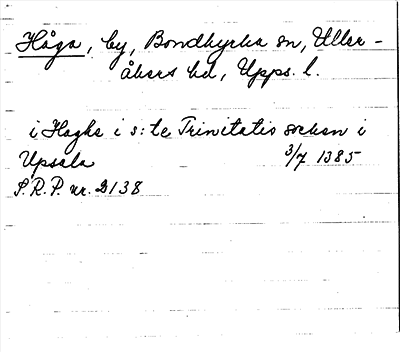 Håga, by, Bondkyrka sn, Uller-
åkers hd, Upps. l.
i Hagha i s:te Trinitatis socken i
Upsala 3/7 1385
S.R.P. nr. 2138